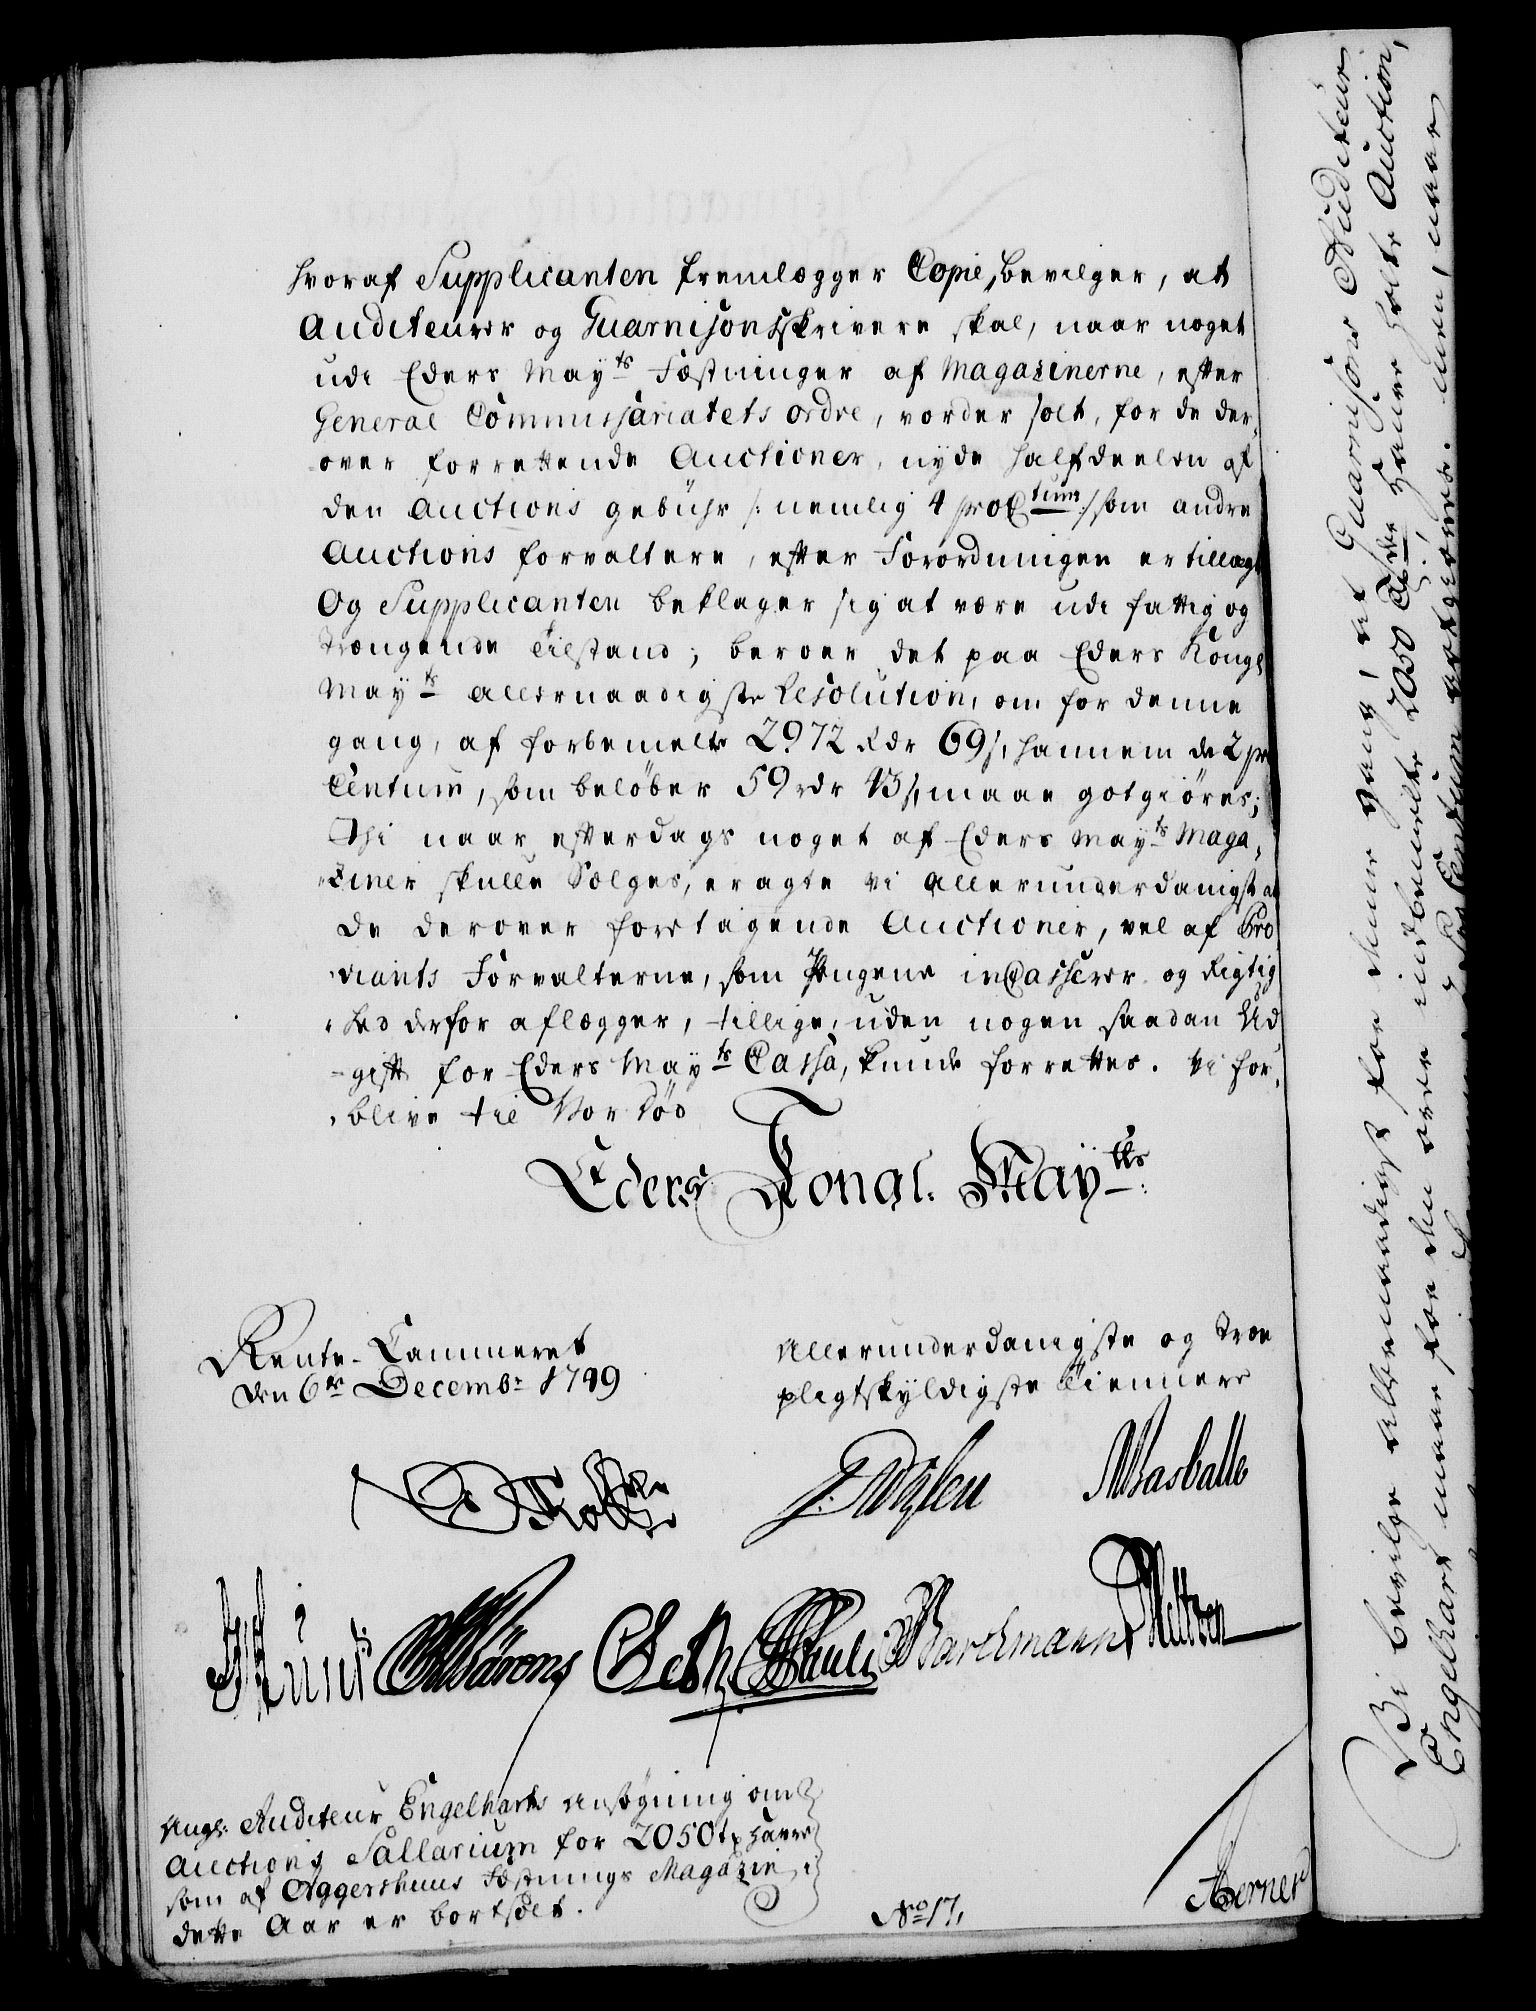 hvoraf Supplicanten fremlægger Copie, bevilger, at
Auditeurer og Guarnisonsskrivere skal, naar noget
udi Eders Mayts Fæstninger af Magazinerne, efter
General Commissariatets ordre, vorder solt, for de der,
over forrettende Auctioner, nyde halfdeelen af
den Auctions gebühr /: nemlig 4 proCtum :/ som andre
Auctions forvaltere, efter Forordningen er tillagt
Og Supplicanten beklager sig at være udi fattig og
trængende Tilstand; beroer det paa Eders Kongl
Mayts allernaadigste Resolution, om for denne
gang, af forbemelte 2972 Rdr 69 s, hannem de 2 pr
Centum, som beløber 59 rdr 43 s, maae gotgiöres;
Thi naar efterdags noget af Eders Mayts Maga,
ziner skulle Sælges, eragte vi allerunderdanigst at
de derover foretagende Auctioner, vel af Pro
viants Forvalterne, som Pengene inCasserer og Rigtig
hed derfor aflægger, tillige, uden nogen saadan Ud
gift for Eders Mayts Cassa, kunde forrettes. Vi for,
blive til Vor død
Eders Kongl. Mayts.
Rente-Cammeret
den 6te Decembr 1749
Allerunderdanigste og troe
pligtskyldigste Tiennere
Barchmann
Angl: Auditeur Engelharts Ansøgning om
Auctions Sallarium for 2050 tr Havre
som af Aggershuus Fæstnings Magazin, i
dette Aar er bortsolt.
No 17,
Berner
Vi bevilge allernaadigst for denne gang, at Guarnisons Auditeur
Engelhart maae for den over indbemelte 2050 Tdr Havre holte Auction,
2 pro Centum godtgiøres. men, naar